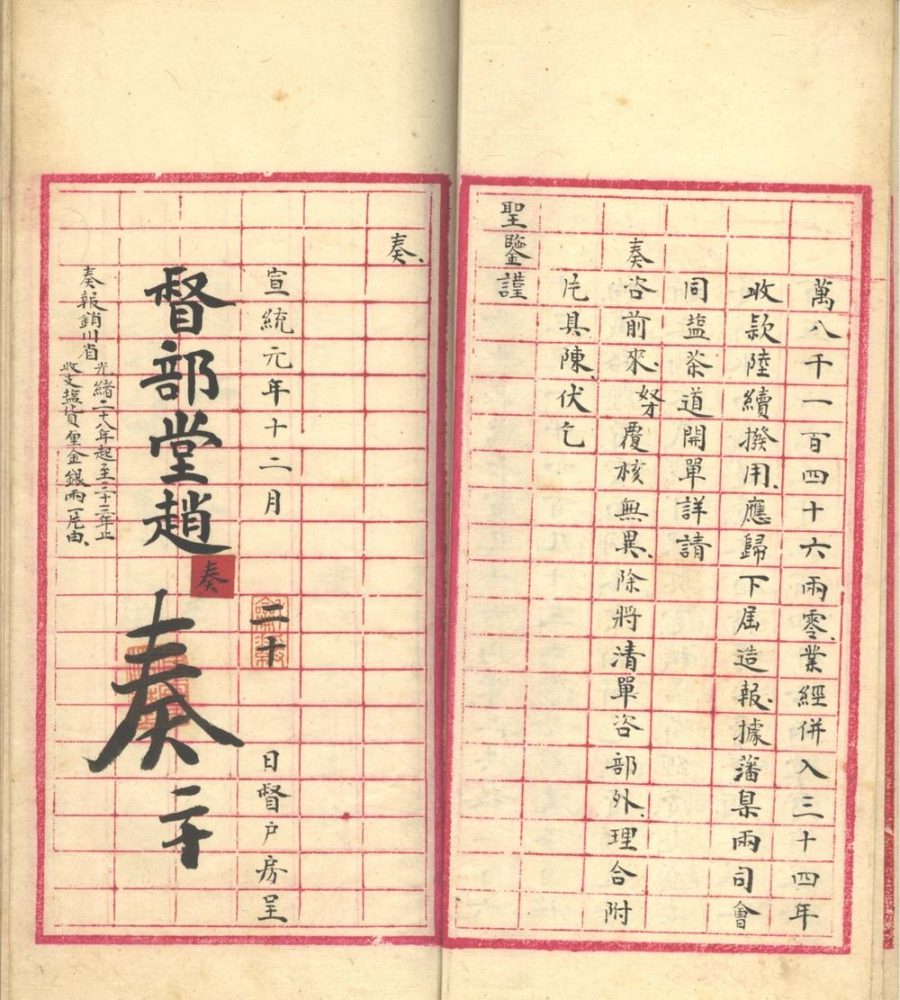 萬八千一百四十六兩零業經併入三十四年
收款陸續撥用應歸下届造報據藩臬兩司會
同盐茶道開單詳請
奏咨前來奴才覆核無異除將清單咨部外理合附
片具陳伏乞
聖鑒謹
奏
宣統元年十二月二十日督户房呈
督部堂趙
奏
奏二十
奏報銷川省
光緒二十八年起至三十三年止
收支盐貨厘金銀兩一片由